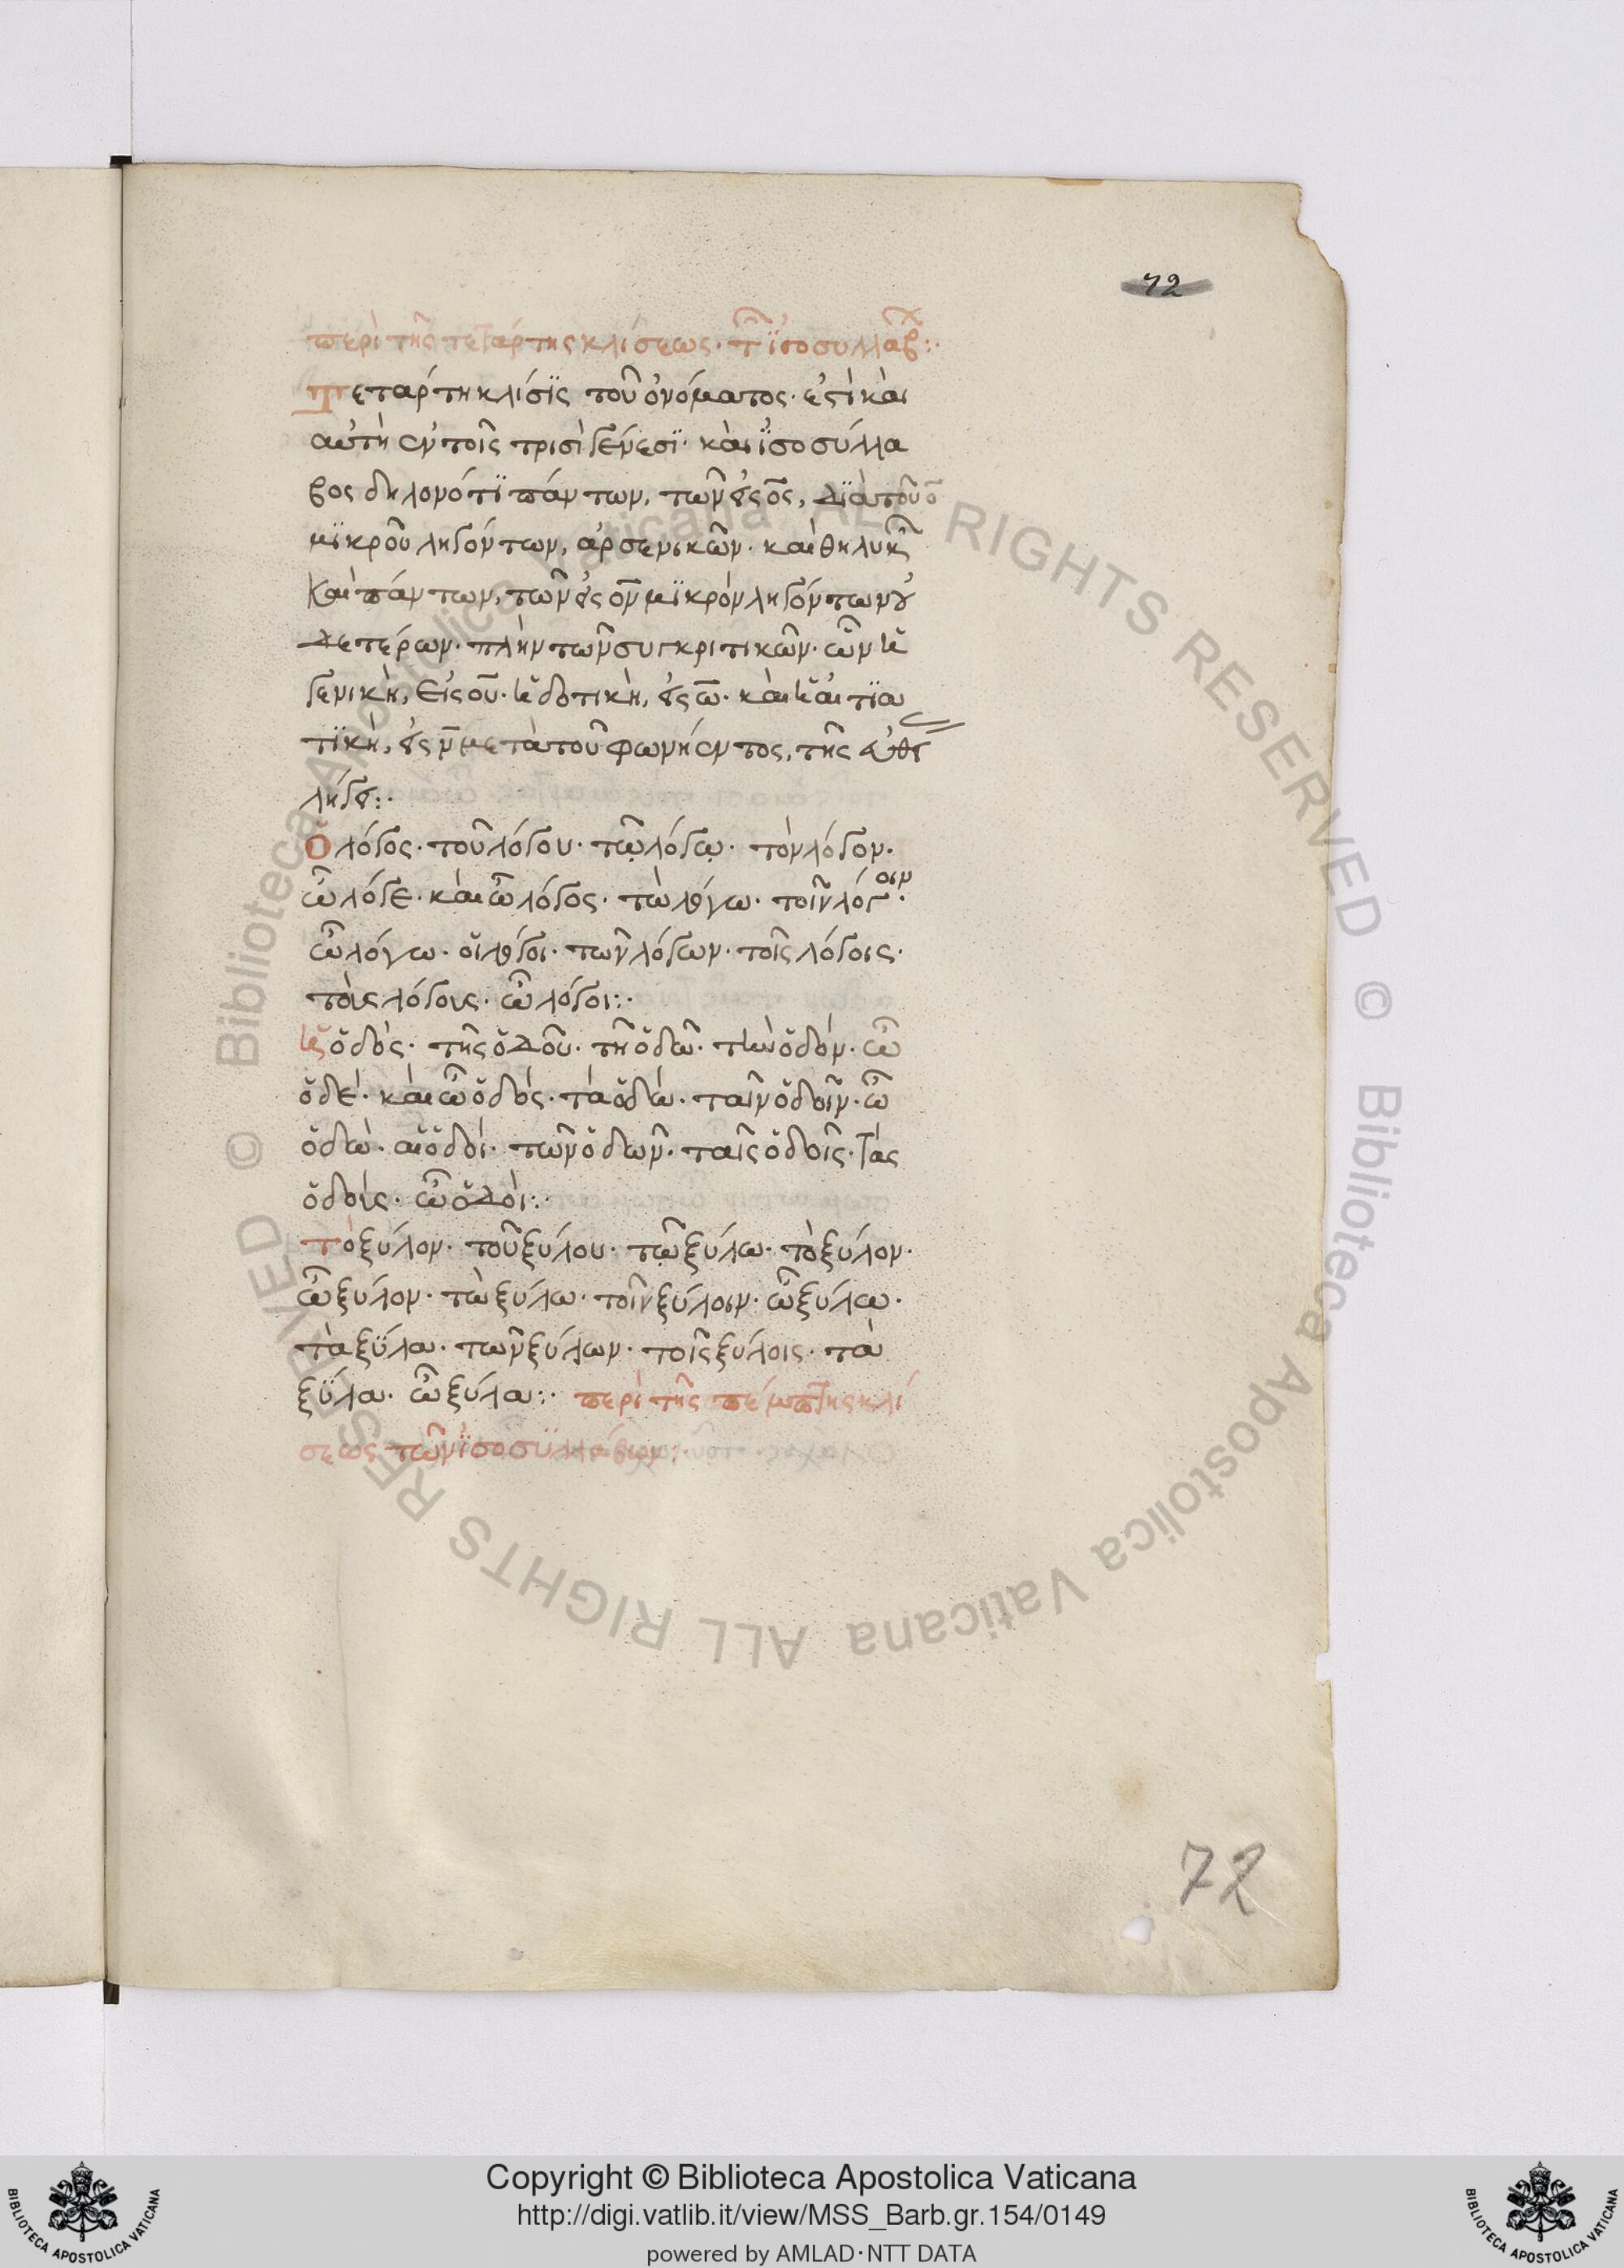 72
περὶ τῆς τετάρτης κλίσεως· τῶν ἰσοσυλλάβ:·
Ἡ τετάρτη κλίσϊς τοῦ ὀνόματος· ἐστὶ καὶ
αὐτὴ ἐν τοῖς τρισὶ γένεσϊ· καὶ ἰσοσύλλα
βος δηλονότϊ πάντων, τῶν εἰς ος, διὰ τοῦ ο
μϊκροῦ ληγόντων, ἀρσενικῶν· καὶ θηλυκῶν
καὶ πάντων, τῶν εἰς ον μϊκρὸν ληγόντων οὐ
δετέρων· πλὴν τῶν συγκριτικῶν· ὧν ἡ
γενικὴ, εἰς ου· ἡ δοτικὴ, εἰς ω· καὶ ἡ αἰτϊα
τϊκὴ, εἰς ν μετὰ τοῦ φωνήεντος, τῆς εὐθεί
λήγει:·
Ὁ λόγος· τοῦ λόγου· τῷ λόγῳ· τὸν λόγον·
ὦ λόγε· καὶ ὦ λόγος· τὼ λόγω· τοῖν λόγοιν·
ὦ λόγω· οἱ λόγοι· τῶν λόγων· τοῖς λόγοις·
τοὺς λόγους· ὦ λόγοι:·
ἡ ὁδὸς· τῆς ὁδοῦ· τῆ ὁδῶ· τὴν ὁδόν· ὦ
ὁδέ· καὶ ὦ ὁδός· τὰ ὁδώ· ταῖν ὁδοῖν· ὦ
ὁδώ· αἱ ὁδοί· τῶν ὁδῶν· ταῖς ὁδοῖς· τὰς
ὁδούς· ὦ ὁδοὶ:·
τὸ ξύλον· τοῦ ξύλου· τῷ ξύλω· τὸ ξύλον·
ὦ ξύλον· τὼ ξύλω· τοῖν ξύλοιν· ὦ ξύλω·
τὰ ξύλα· τῶν ξύλων· τοῖς ξύλοις· τὰ
ξύλα· ὦ ξύλα:· περὶ τῆς πέμπτης κλί
σεως τῶν ἰσοσϋλλάβων:
72
Copyright © Biblioteca Apostolica Vaticana
http://digi.vatlib.it/view/MSS_Barb.gr.154/0149
powered by AMLAD·NTT DATA
BIBLIOTECA APOSTOLICA VATICANA
BIBLIOTECA APOSTOLICA VATICANA
© Biblioteca Apostolica Vaticana ALL RIGHTS RESERVED © Biblioteca Apostolica Vaticana ALL RIGHTS RESERVED